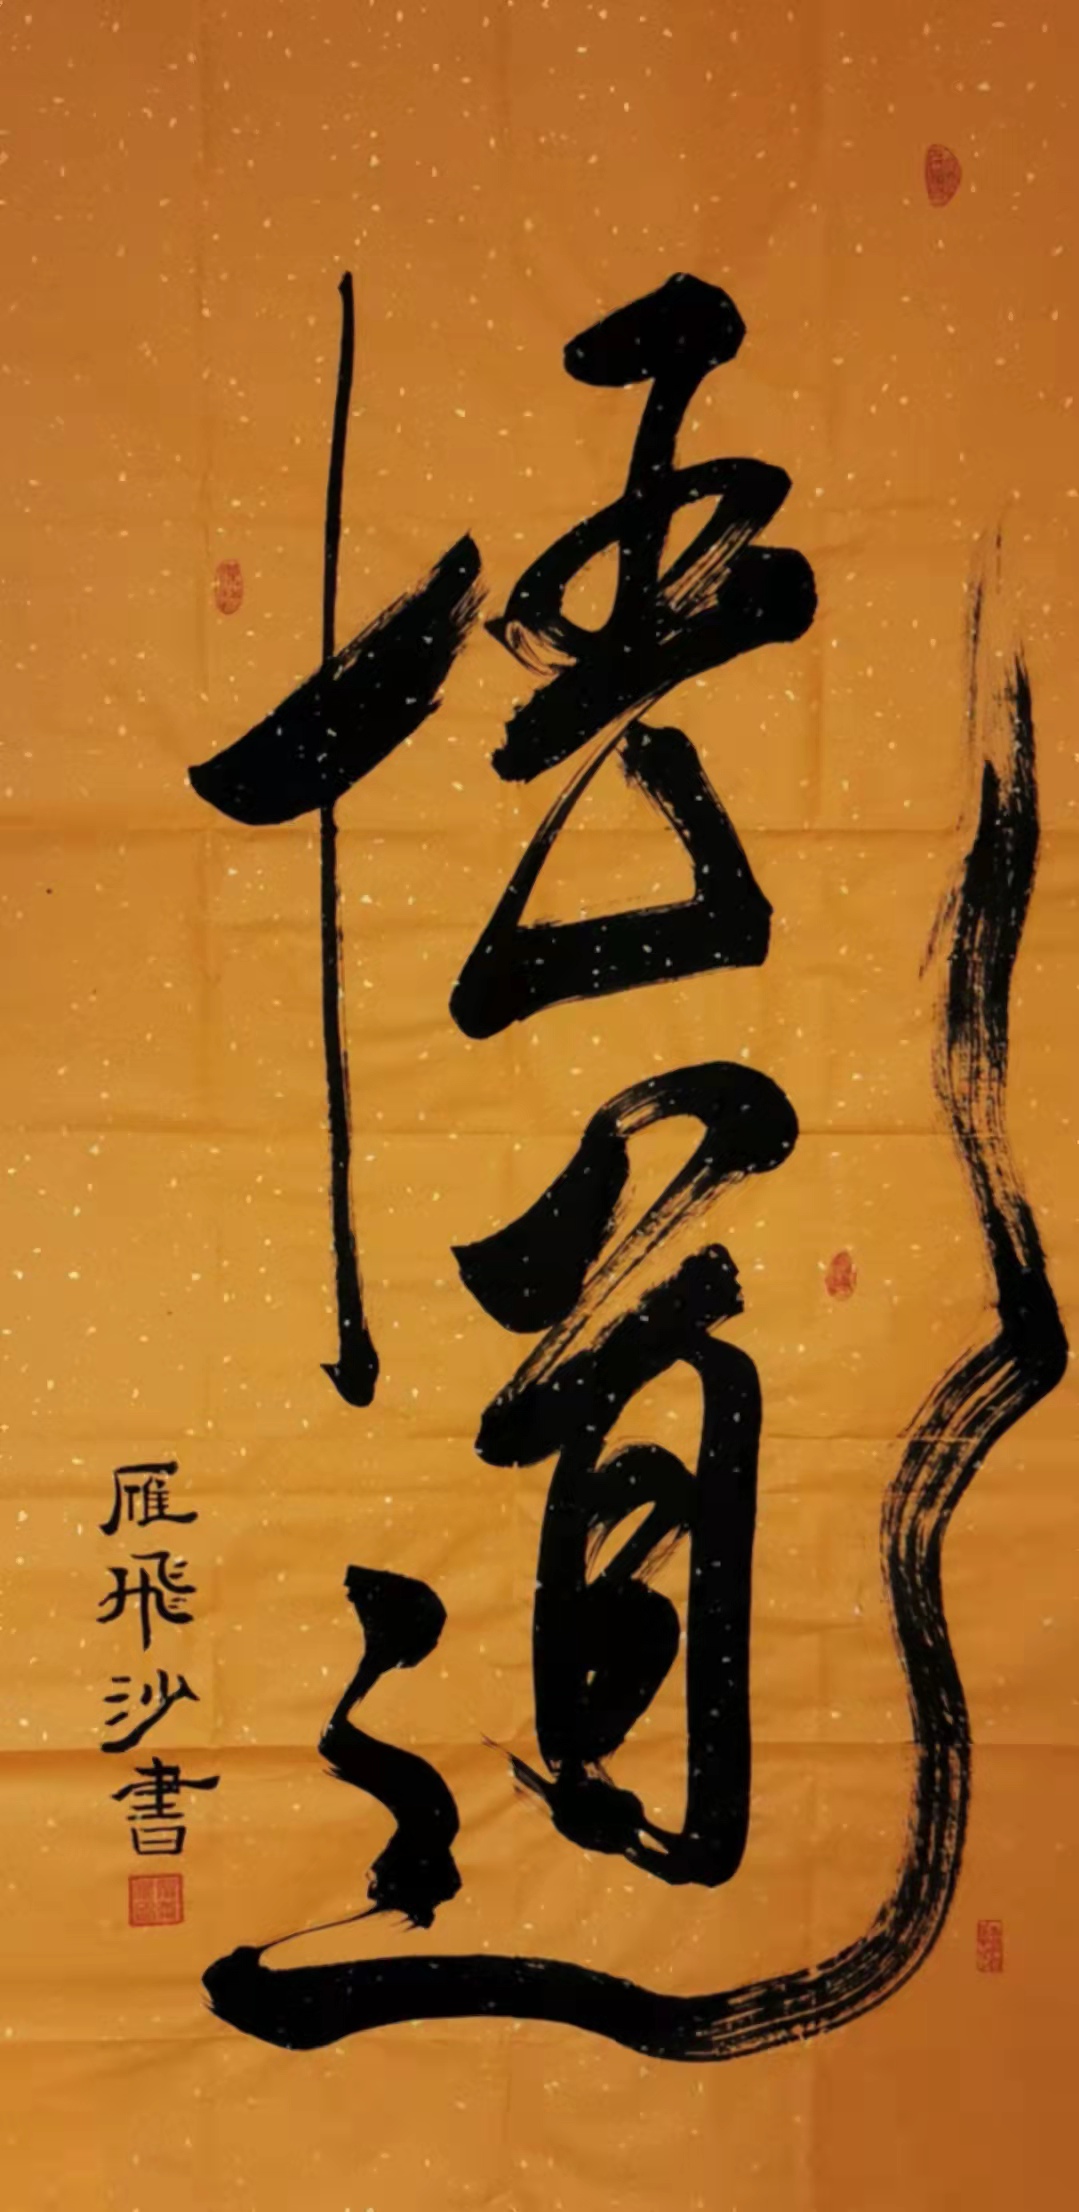 悟道
雁飛沙書